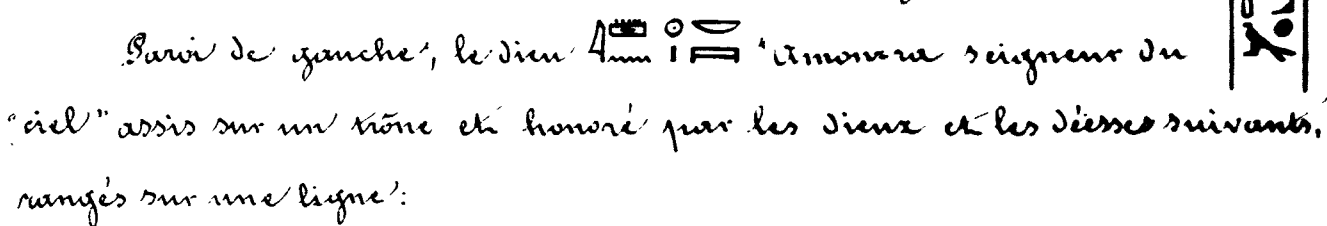 Paroi de gauche, le dieu 𓇋𓏠𓈖𓇳𓏤𓎟𓇯 "Amonra seigneur du
"ciel" assis sur un trône et honoré par les dieux et les déesses suivants,
rangés sur une ligne: